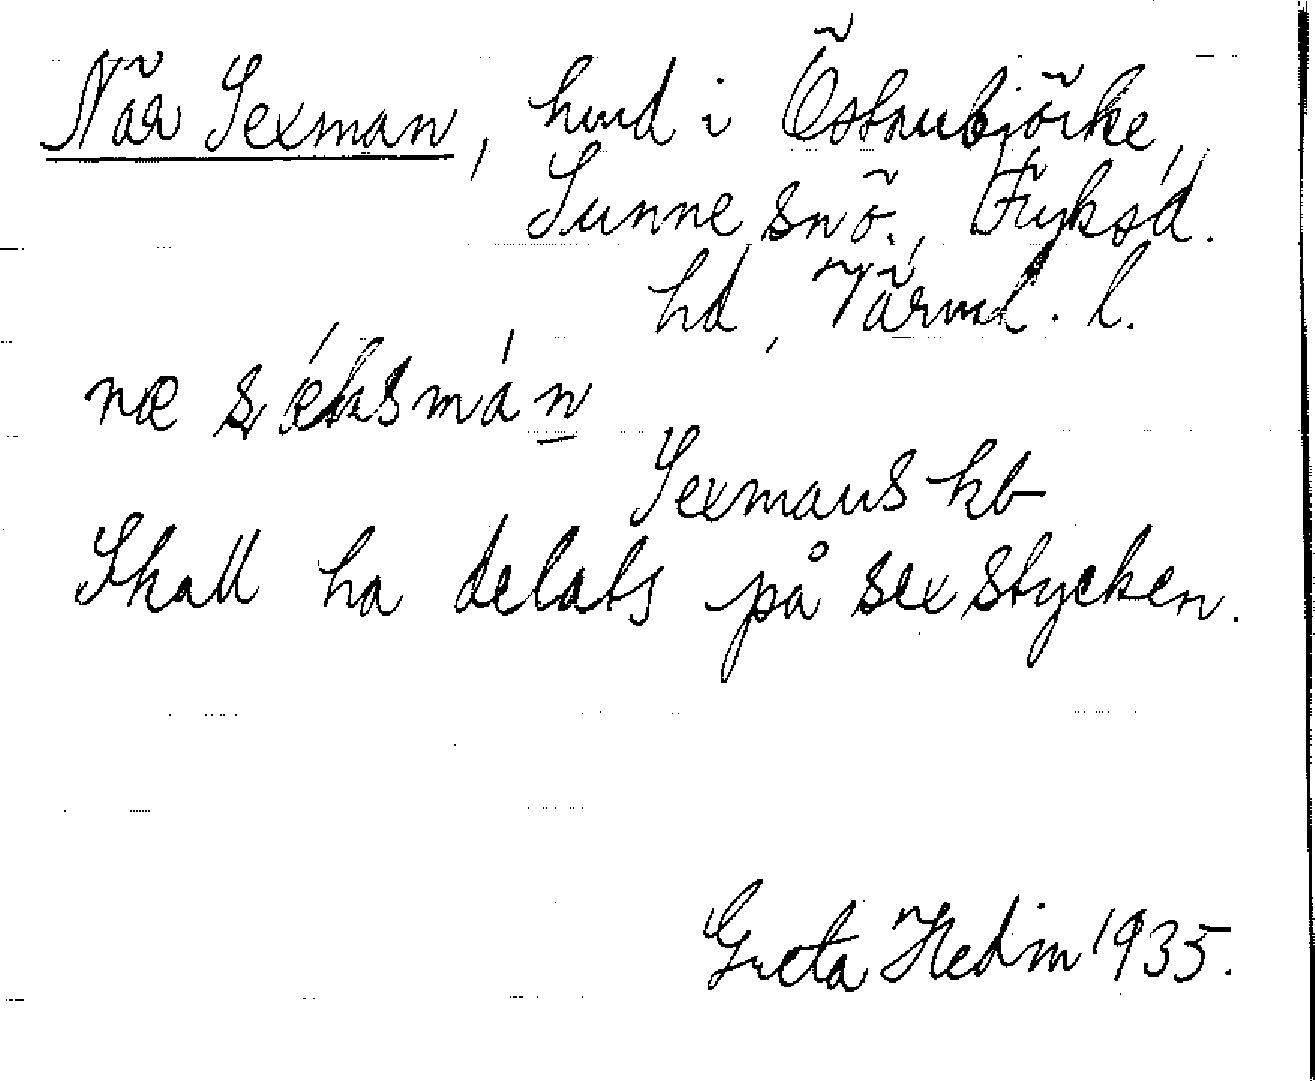 När Sexman, hmd i Östanbjörke,
Sunne sn ö., Fryksd.
hd, Värml. l.
næ sǽksmán
Sexmans kb
Skall ha delats på sex stycken.
Greta Hedin 1935.